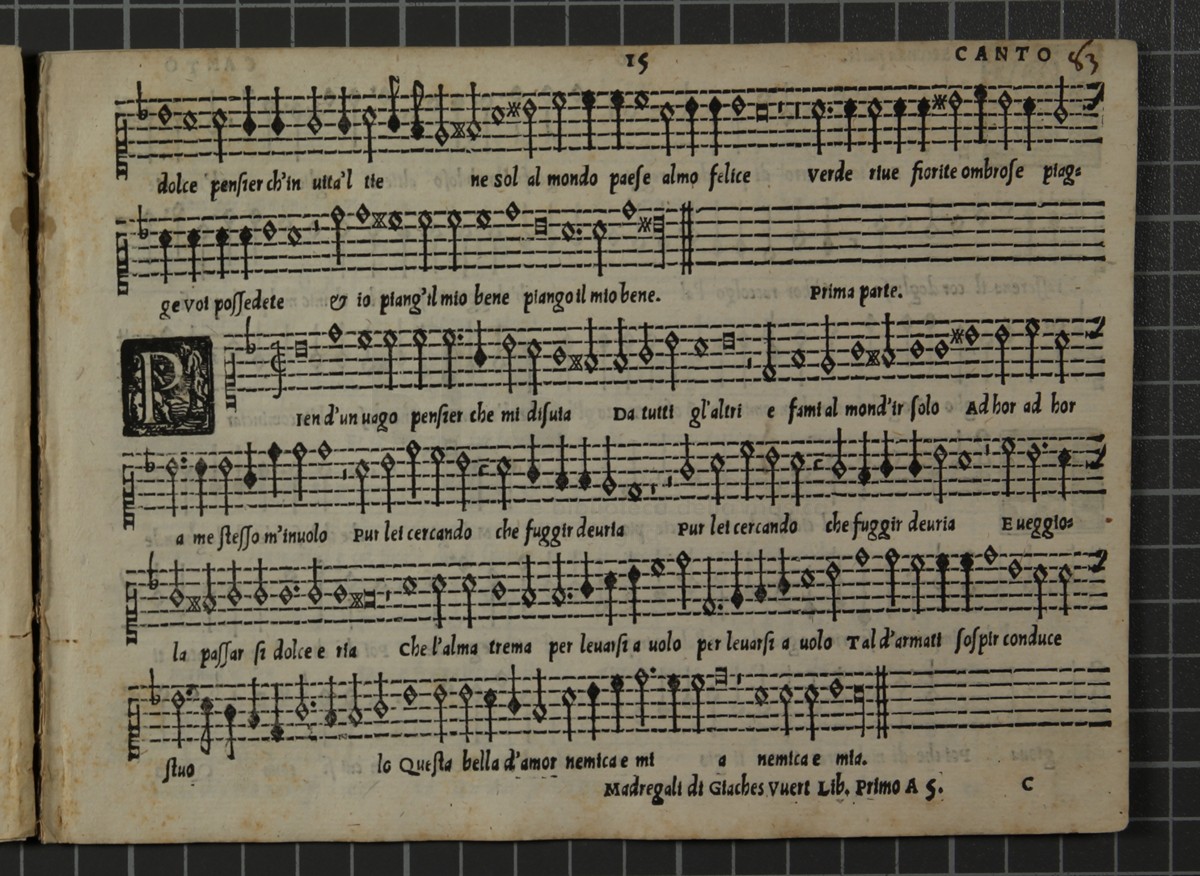 15 CANTO 83
dolce pensier ch'in uita'l tie ne sol al mondo paese almo felice verde riue fiorite ombrose piag-
ge voi possedete & io piang'il mio bene piango il mio bene. Prima parte.
PIen d'un uago pensier che mi disuia Da tutti gl'altri e fami al mond'ir solo Ad hor ad hor
a me stesso m'inuolo Pur lei cercando che fuggir deuria Pur lei cercando che fuggir deuria E ueggio-
la passar si dolce e ria Che l'alma trema per leuarsi a uolo per leuarsi a uolo Tal d'armati sospir conduce
stuo lo Questa bella d'amor nemica e mi a nemica e mia.
Madregali di Giaches Vuert Lib. Primo A 5. C